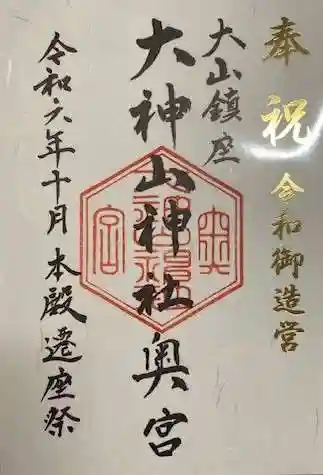 奉祝 令和御造営
大山鎮座
大神山神社奥宮
令和六年十月 本殿遷座祭
奥
宮